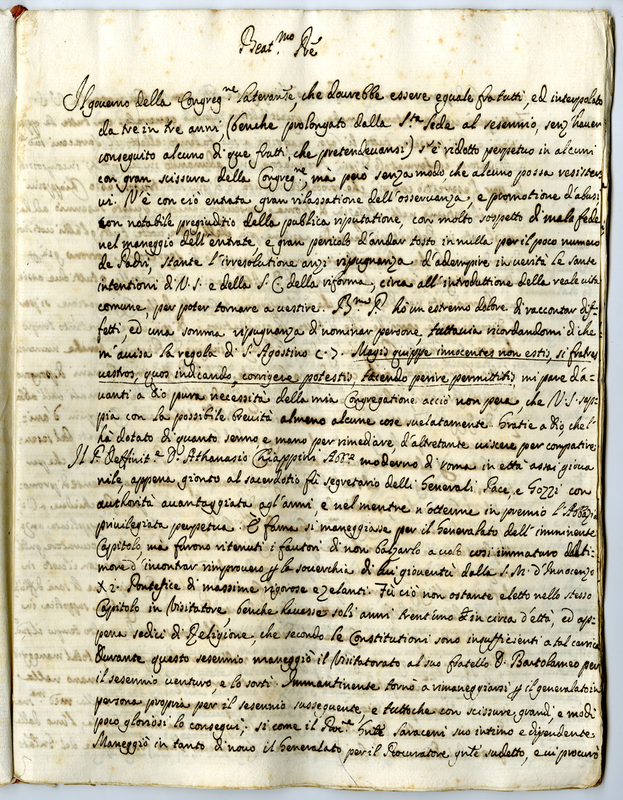 Beat.mo Pre
Il governo della Congreg.ne Lateran.se, che dovrebbe essere eguale fra tutti, ed interpolato
da tre in tre anni (benche prolongato dalla S.ta Sede al sesennio, senz'haver
conseguito alcuno di que frutti, che pretendevansi) s'è ridotto perpetuo in alcuni
con gran scissura della Congreg.ne, mà però senza modo, che alcuno possa resister
vi. V'è con ciò entrata gran rilassatione dell'osservanza, e promotione d'abusi
con notabile pregiuditio della publica riputatione, con molto sospetto di mala fede
nel maneggio dell'entrate, e gran pericolo d'andar tosto in nulla per il poco numero
de Padri, stante l'irresolutione anzi ripugnanza d'adempire in verità le sante
intentioni di V.S. e della S. C. della riforma, circa all'introduttione della reale vita
comune, per poter tornare a vestire. B.mo P. hò un estremo dolore di raccontar dif-
fetti, ed una somma ripugnanza di nominar persone, tuttavia ricordandomi di che
m'avisa la regola di S. Agostino Magis quippe innocentes non estis, si fratres
vestros, quos indicando, corrigere potestis, tacendo perire permittitis, mi pare d'a-
vanti a Dio pura necessità della mia Congregatione acciò non pera, che V.S. sap-
pia con la possibile brevità almeno alcune cose svelatamente. Gratie a Dio che l'
hà dotato di quanto senno e mano per rimediare d'altretante viscere per compatire
Il P. Deffinit.e D. Athanasio Chiappini Abb.e moderno di roma in età assai giova
nile, appena gionto al sacerdotio fù segretario delli Generali Pace, e Gozzi con
authorità avantaggiata agl'anni, e nel mentre n'ottenne in premio l'Abbazia
privilegiata perpetua. È fama si maneggiasse per il Generalato dell'imminente
Capitolo, mà furono ritenuti i fautori di non balzarlo a volo così immaturo dal ti-
more d'incontrar rimprovero la soverchia di lui gioventù dalla S.M. d'Innocenzo
XI. Pontefice di massime rigorose e zelanti. Fù ciò non ostante eletto nello stesso
Capitolo in Visitatore benche havesse soli anni trent'uno in circa d'età, ed ap-
pena sedici di Religione, che secondo le Constitutioni sono insufficienti a tal carrica
Durante questo sesennio maneggiò il Visitatorato al suo fratello D. Bartolomeo per
il sesennio venturo, e lo sortì. Immantinente tornò a rimaneggiarsi il generalato in
persona propria per il sesennio susseguente, e tuttoche con scissure grandi, e modi
poco gloriosi lo conseguì. si come il Proc.re Gnle Saraceni suo intrino e dipendente
Maneggiò in tanto di novo il Generalato per il Procuratore gnle sudetto, e vi procurò